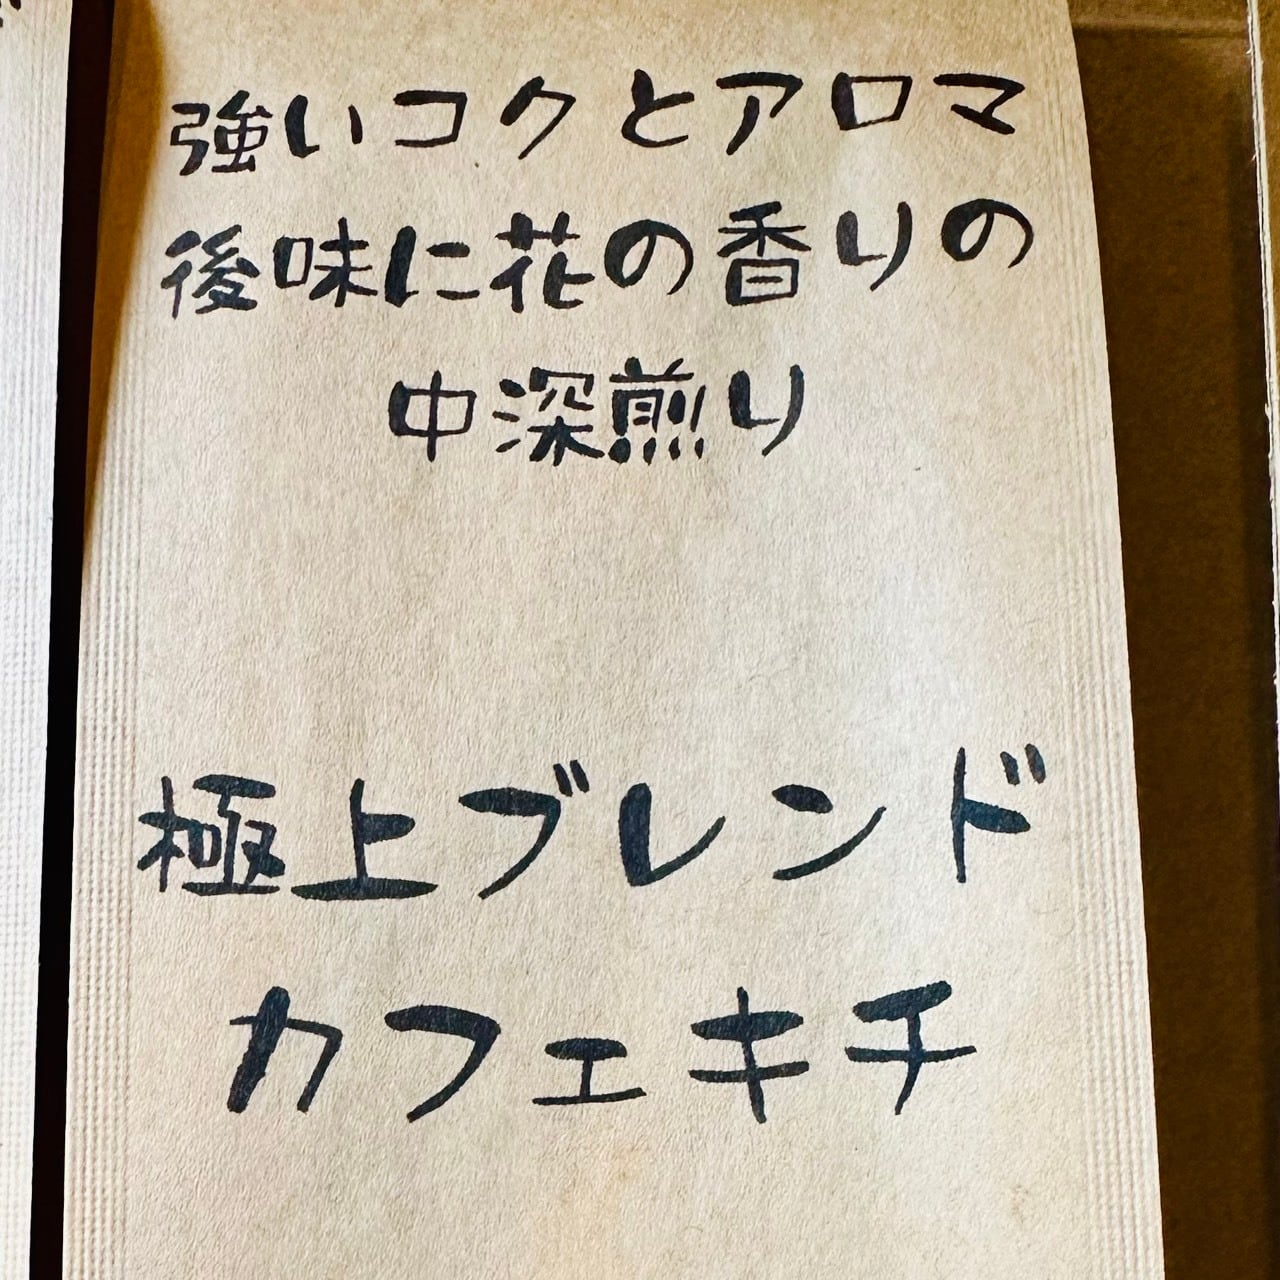 強いコクとアロマ
後味に花の香りの
中深煎り
極上ブレンド
カフェキチ